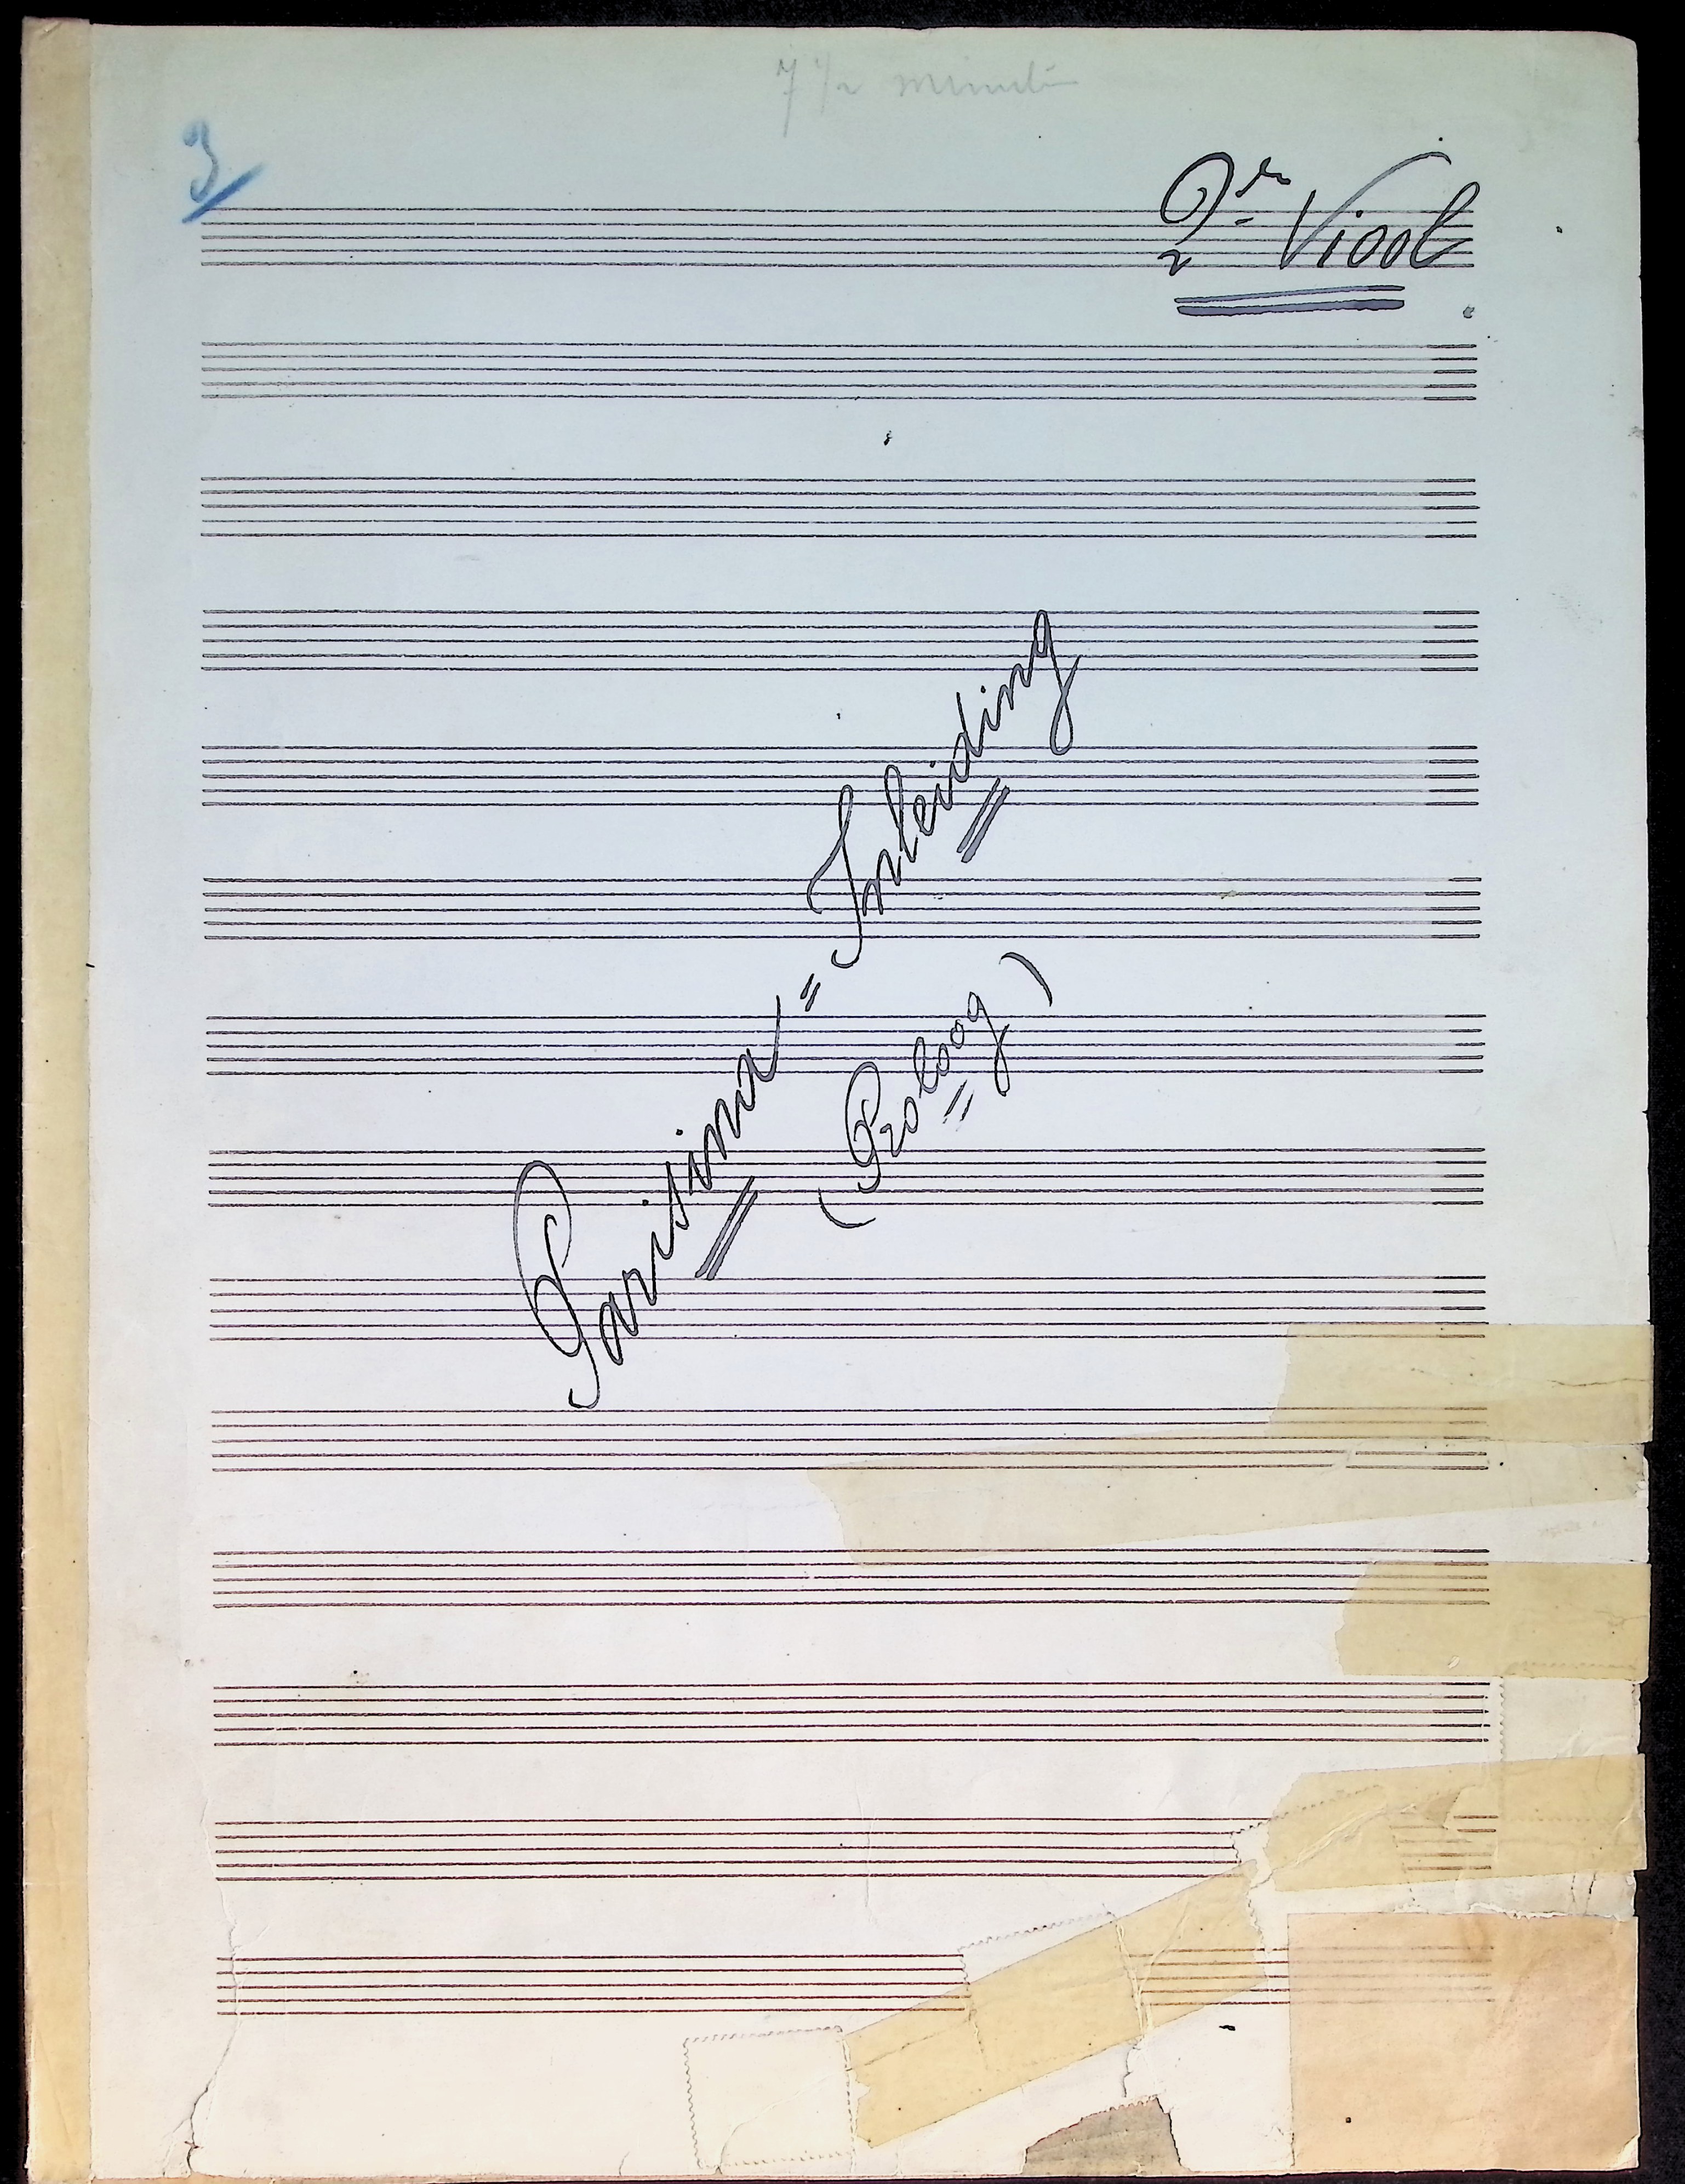 7 1/2 minuten
3
2de Viool
Parisina = Inleiding
(Proloog)